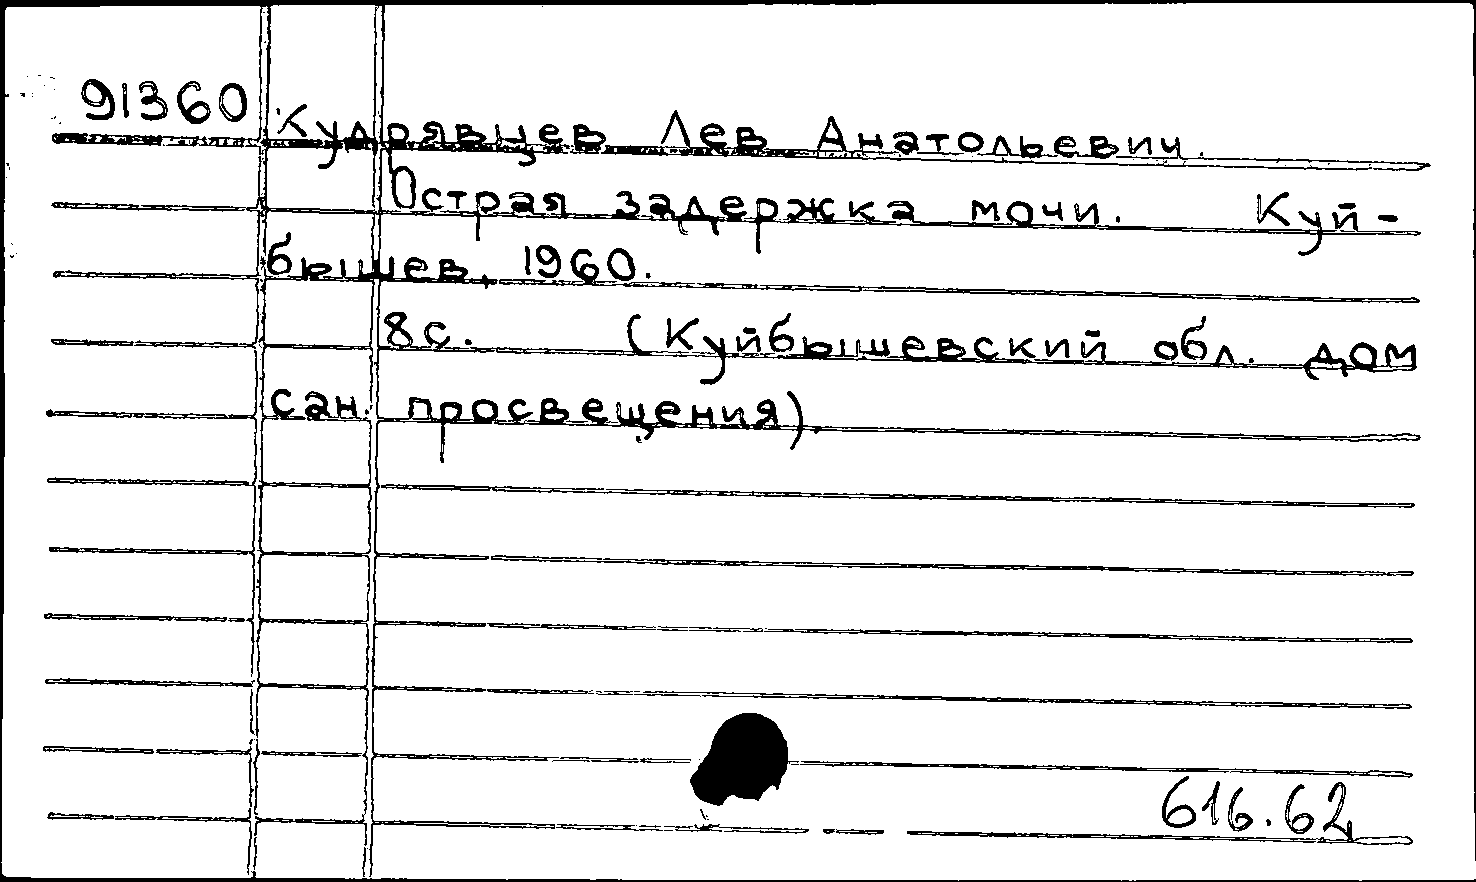 91360 Кудрявцев Лев Анатольевич.
Острая задержка мочи. Куй-
бышев, 1960.
8с. (Куйбышевский обл. дом
сан. просвещения).
616.62